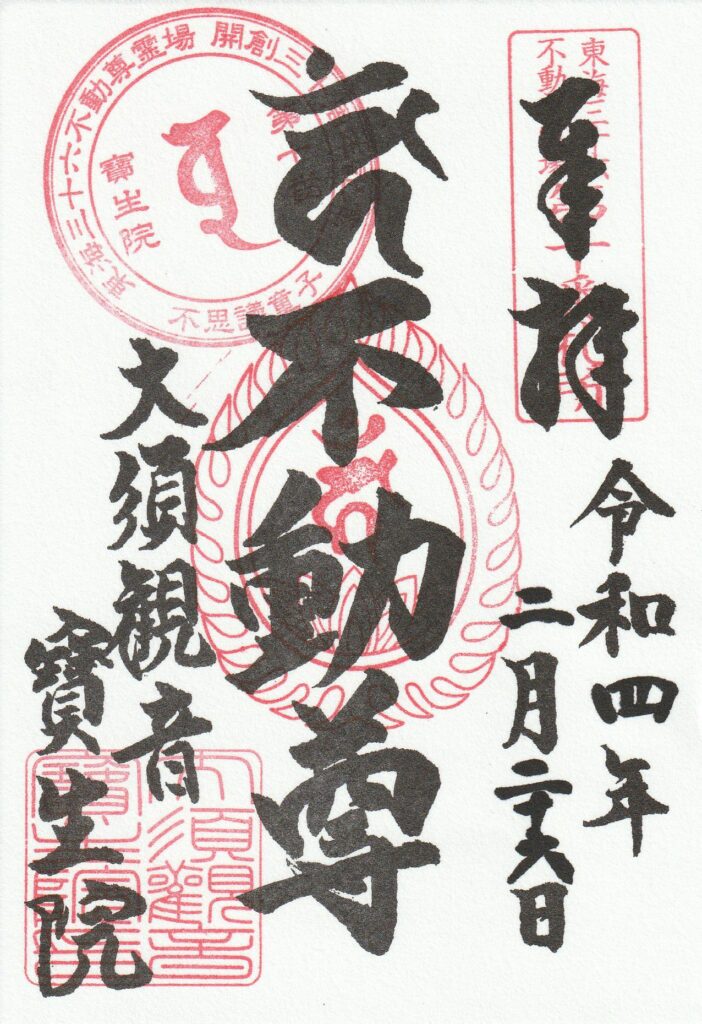 奉拝
令和四年
二月二十六日
不動尊
大須観音
寶生院
東海三十六不動尊霊場 開創三
寶生院
不思議童子
東海三
不動
大須觀音
寶生院